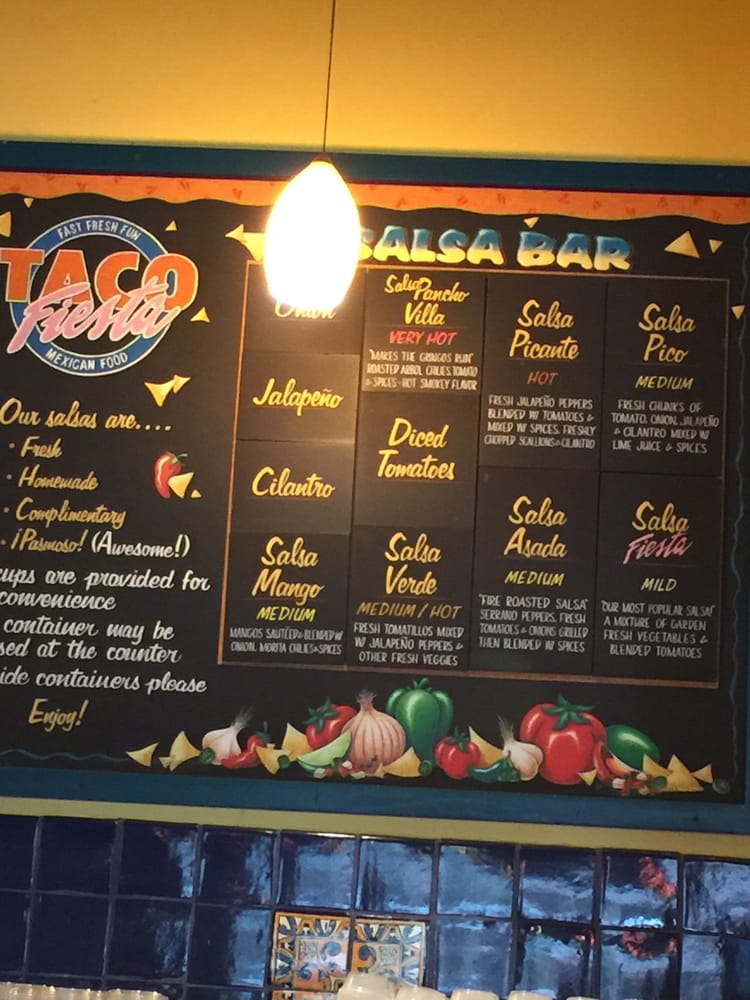 FAST FRESH FUN
TACO
Fiesta
MEXICAN FOOD
Our salsas are....
· Fresh
· Homemade
· Complimentary
· ¡Pasmoso! (Awesome!)
cups are provided for
convenience
container may be
at the counter
containers please
Enjoy!
SALSA BAR
Onion
Jalapeño
Cilantro
Salsa
Mango
MEDIUM
MANGOS SAUTÉED & BLENDED W/
ONION, MORITA CHILIES & SPICES
Salsa Pancho
Villa
VERY HOT
"MAKES THE GRINGOS RUN"
ROASTED ARBOL CHILIES, TOMATO
& SPICES - HOT SMOKEY FLAVOR
Diced
Tomatoes
Salsa
Verde
MEDIUM / HOT
FRESH TOMATILLOS MIXED
W/ JALAPEÑO PEPPERS &
OTHER FRESH VEGGIES
Salsa
Picante
HOT
FRESH JALAPEÑO PEPPERS
BLENDED W/ TOMATOES &
MIXED W/ SPICES. FRESHLY
CHOPPED SCALLIONS & CILANTRO
Salsa
Asada
MEDIUM
"FIRE ROASTED SALSA"
SERRANO PEPPERS, FRESH
TOMATOES & ONIONS GRILLED
THEN BLENDED W/ SPICES
Salsa
Pico
MEDIUM
FRESH CHUNKS OF
TOMATO, ONION, JALAPEÑO
& CILANTRO MIXED W/
LIME JUICE & SPICES
Salsa
Fiesta
MILD
"OUR MOST POPULAR SALSA"
A MIXTURE OF GARDEN
FRESH VEGETABLES &
BLENDED TOMATOES